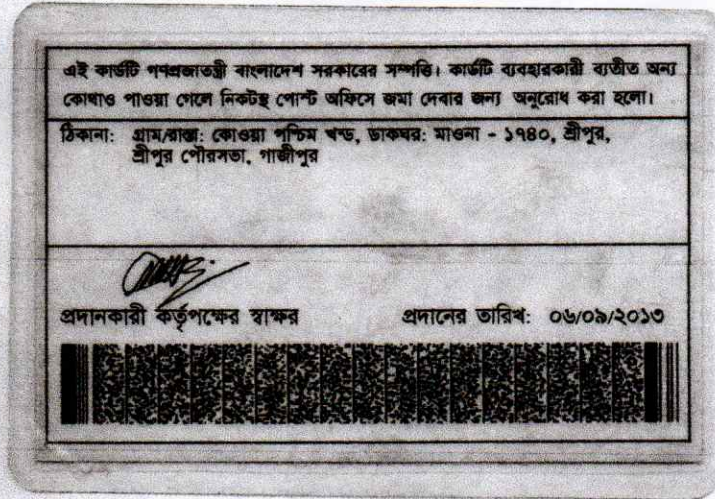 এই কার্ডটি গণপ্রজাতন্ত্রী বাংলাদেশ সরকারের সম্পত্তি। কার্ডটি ব্যবহারকারী ব্যতীত অন্য
কোথাও পাওয়া গেলে নিকটস্থ পোস্ট অফিসে জমা দেবার জন্য অনুরোধ করা হলো।
ঠিকানা: গ্রাম/রাস্তা: কেওয়া পশ্চিম খন্ড, ডাকঘর: মাওনা - ১৭৪০, শ্রীপুর,
শ্রীপুর পৌরসভা, গাজীপুর
প্রদানকারী কর্তৃপক্ষের স্বাক্ষর প্রদানের তারিখ: ০৬/০৯/২০১৩